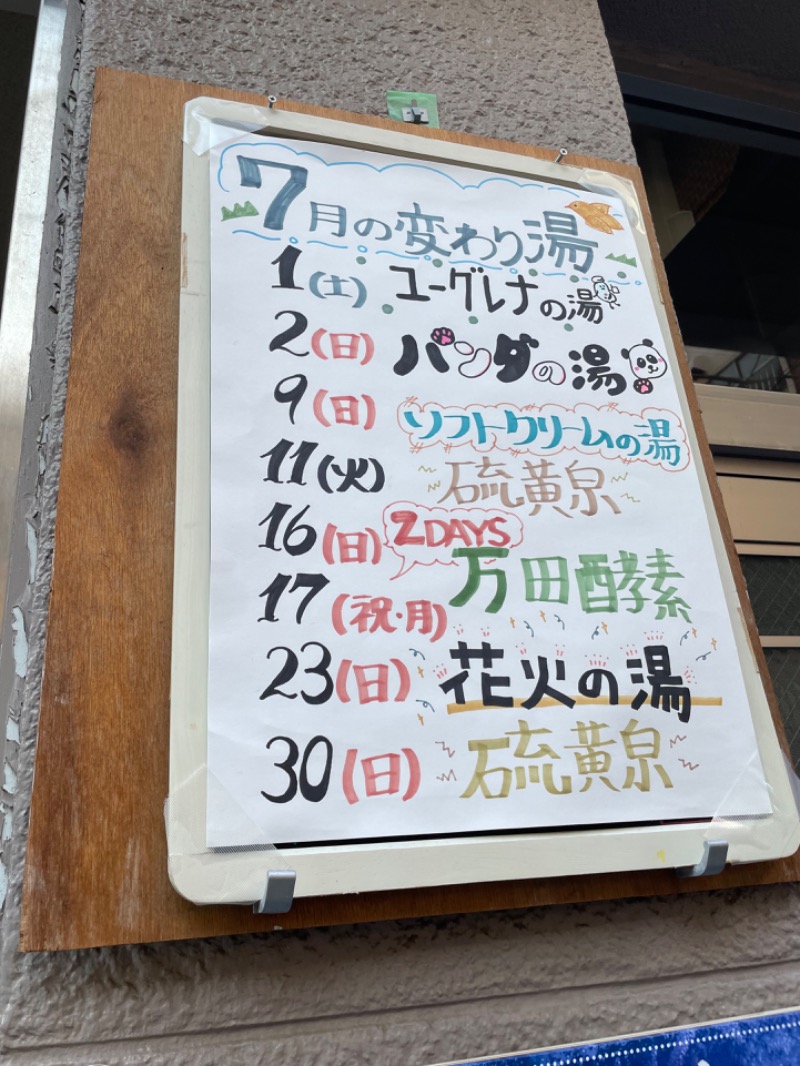 7月の変わり湯
1(土) ユーグレナの湯
2(日) パンダの湯
9(日) ソフトクリームの湯
11(火) 硫黄泉
16(日) 2DAYS
17(祝・月) 万田酵素
23(日) 花火の湯
30(日) 硫黄泉